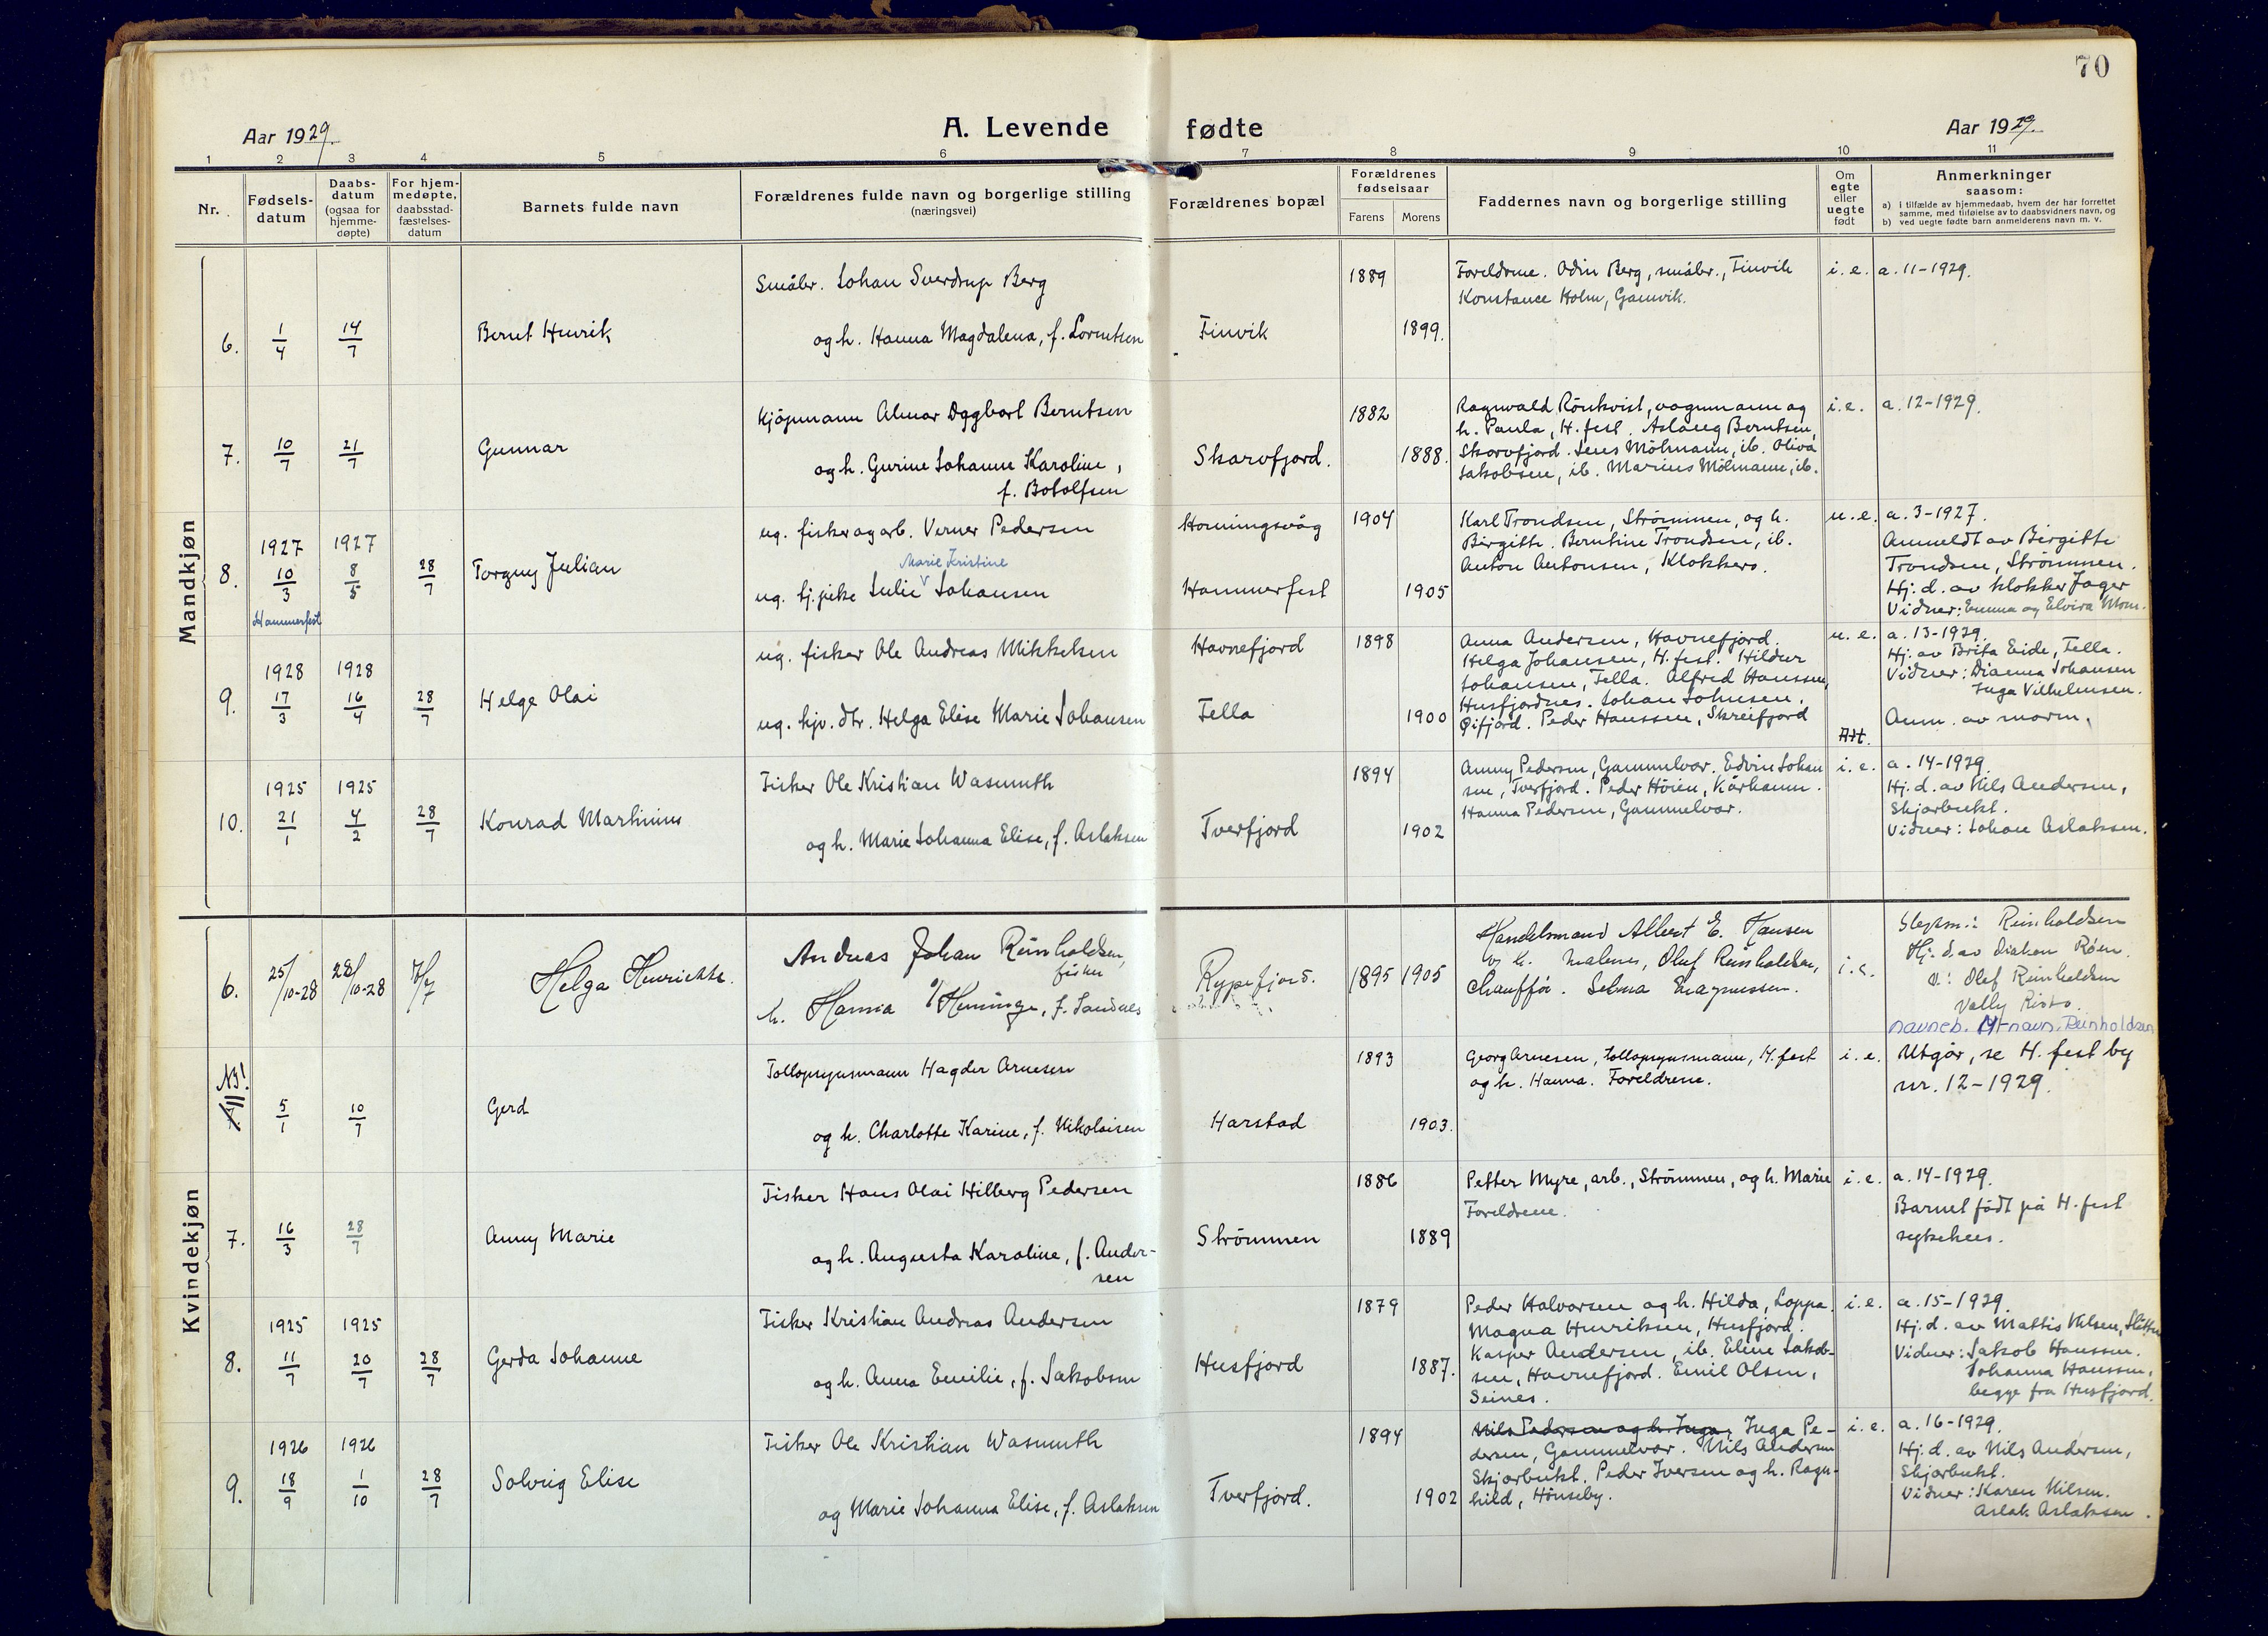 70
Aar 1929.
A. Levende fødte
Aar 1929.
1 2 3 4 5 6 7 8 9 10 11
Nr.
Fødsels-
datum
Daabs-
datum
(ogsaa for
hjemme-
døpte)
For hjem-
medøpte,
daabsstad-
fæstelses-
datum
Barnets fulde navn
Forældrenes fulde navn og borgerlige stilling
(næringsvei)
Forældrenes bopæl
Forældrenes
fødselsaar
Farens Morens
Faddernes navn og borgerlige stilling
Om
egte
eller
uegte
født
Anmerkninger
saasom:
a) i tilfælde av hjemmedaab, hvem der har forrettet
samme, med tilføielse av to daabsvidners navn, og
b) ved uegte fødte barn anmelderens navn m. v.
Mandkjøn
6. 1/4 14/7
Bernt Henrik
Småbr. Johan Sverdrup Berg
og h. Hanna Magdalena, f. Lorentsen
Finvik
1889
1899.
Foreldrene. Odin Berg, småbr., Finvik
Konstance Holm, Gamvik.
i. e.
a. 11-1929.
7. 10/7 21/7
Gunnar
Kjøpmann Almar Dagbart Berntsen
og h. Gurine Johanne Karoline,
f. Botolfsen
Skarvfjord.
1882
1888.
Ragnvald Rönkvist, vognmann og
h. Paula, H.fest. Aslaug Berntsen,
Skarvfjord. Jens Mölmann, ib. Oliva
Jakobsen, ib. Marius Mölmann, ib.
i. e.
a. 12-1929.
8. 1927 10/3 1927 8/5 28/7
Hammerfest
Torgny Julian
ug. fisker og arb. Verner Pedersen
Marie Kristine
ug. tj.pike Julie Johansen
Honningsvåg
Hammerfest
1904
1905
Karl Trondsen, Strömmen, og h.
Birgitte. Berntine Trondsen, ib.
Anton Antonsen, Klokkero.
u. e.
a. 3-1927.
Anmeldt av Birgitte
Trondsen, Strömmen.
Hj. d. av klokker Jager
Vidner: Emma og Elvira Mom.
9. 1928 17/3 1928 16/4 28/7
Helge Olai
ug. fisker Ole Andreas Mikkelsen
ug. hjv. dtr. Helga Elise Marie Johansen
Havnefjord
Fella
1898
1900
Anna Andersen, Havnefjord.
Helga Johansen, H.fest. Hildur
Johansen, Fella. Alfred Hanssen,
Husfjordnes. Johan Johnsen,
Øifjord. Peder Hanssen, Skreifjord
u. e.
Att.
a. 13-1929.
Hj. av Brita Eide, Fella.
Vidner: Dianna Johansen
Inga Vilhelmsen.
Anm. av morm.
10. 1925 21/1 1925 4/2 28/7
Konrad Martinius
Fisker Ole Kristian Wasmuth
og h. Marie Johanna Elise, f. Aslaksen
Tverfjord
1894
1902
Anny Pedersen, Gammelvær. Edvin Johan
sen, Tverfjord. Peder Höien, Kårhamn.
Hanna Pedersen, Gammelvær.
i. e.
a. 14-1929
Hj. d. av Nils Andersen,
Skjarbukt.
Vidner: Johan Aslaksen.
Kvindekjøn
6. 25/10-28 28/10-28 7/7
Helga Henriette.
Andreas Johan Reinholdsen,
fisker
h. Hanna Henninge, f. Sandnes
Rypefjord.
1895 1905
Handelsmand Albert E. Hansen
og h. Malene, Oluf Reinholdsen,
Chauffør. Selma Magnussen.
i. e.
Slegtsn.: Reinholdsen
Hj. d. av Diakon Røen.
V.: Olef Reinholdsen
Vally Risto.
navneb. Att-navn. Reinholdsen
N3!
7. 5/1 10/7
Gerd
Tollopsynsmann Hagder Arnesen
og h. Charlotte Karine, f. Nikolaisen
Harstad
1893
1903.
Georg Arnesen, tollopsynsmann, H.fest
og h. Hanna. Foreldrene.
i. e.
Utgår, se H.fest by
nr. 12-1929.
7. 16/3 28/7
Anny Marie
Fisker Hans Olai Hilberg Pedersen
og h. Augusta Karoline, f. Ander-
sen
Strömmen
1886
1889
Petter Myre, arb., Strömmen, og h. Marie
Foreldrene.
i. e.
a. 14-1929.
Barnet födt på H.fest
sykehus.
8. 1925 11/7 1925 20/7 28/7
Gerda Johanne
Fisker Kristian Andreas Andersen
og h. Anna Emilie, f. Jakobsen
Husfjord
1879
1887.
Peder Halvorsen og h. Hilda, Loppa.
Magna Henriksen, Husfjord.
Kasper Andersen, ib. Eline Jakob-
sen, Havnefjord. Emil Olsen,
Seines.
i. e.
a. 15-1929.
Hj. d. av Mattis Nilsen, Sletten
Vidner: Jakob Hanssen.
Johanna Hanssen,
begge fra Husfjord.
9. 1926 18/9 1926 1/10 28/7
Solveig Elise
Fisker Ole Kristian Wasmuth
og Marie Johanna Elise, f. Aslaksen
Tverfjord.
1894
1902
Nils Pedersen og h. Inga, Inga Pe-
dersen, Gammelvær. Nils Andersen
Skjarbukt. Peder Iversen og h. Ragn-
hild, Hönseby.
i. e.
a. 16-1929.
Hj. d. av Nils Andersen,
Skjarbukt.
Vidner: Karen Nilsen.
Aslak Aslaksen.